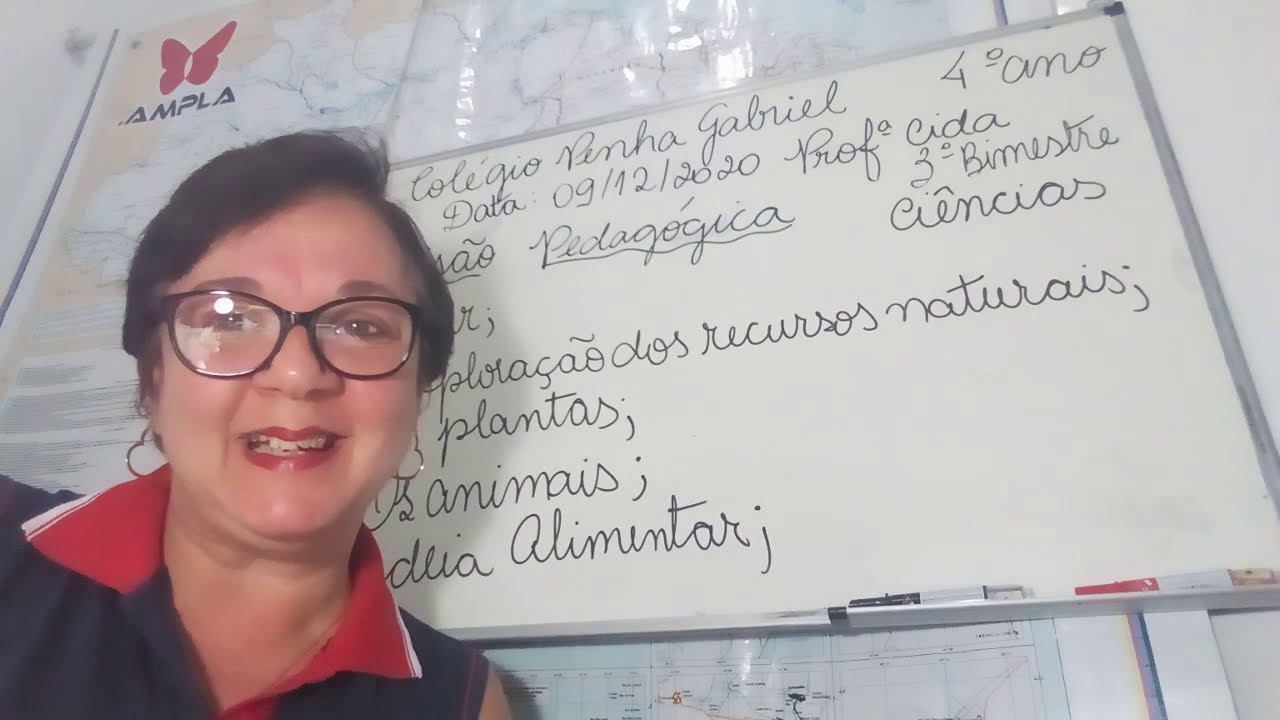 .AMPLA
4º ano
Colégio Penha Gabriel
Data: 09/12/2020 Profª Cida
3º Bimestre
são Pedagógica Ciências
r;
ploração dos recursos naturais;
plantas;
Os animais;
deia Alimentar;